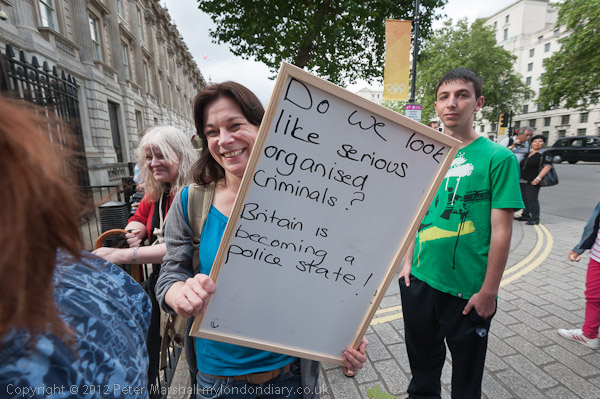 Do we look
like serious
organised
criminals?
Britain is
becoming a
police state!
Copyright © 2012 Peter Marshall mylondondiary.co.uk